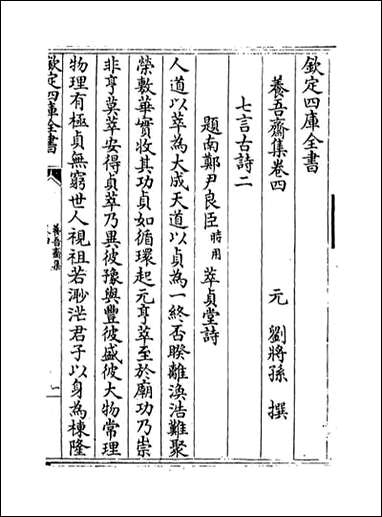 欽定四庫全書
養吾齋集卷四
元 劉將孫 撰
七言古詩二
題南鄭尹良臣時用萃貞堂詩
人道以萃為大成天道以貞為一終否睽離渙浩難聚
榮敷華實收其功貞如循環起元亨萃至於廟功乃崇
非亨莫萃安得貞萃乃異彼豫與豐彼盛彼大物常理
物理有極貞無窮世人視祖若渺茫君子以身為棟隆
欽定四庫全書
養吾齋集
一